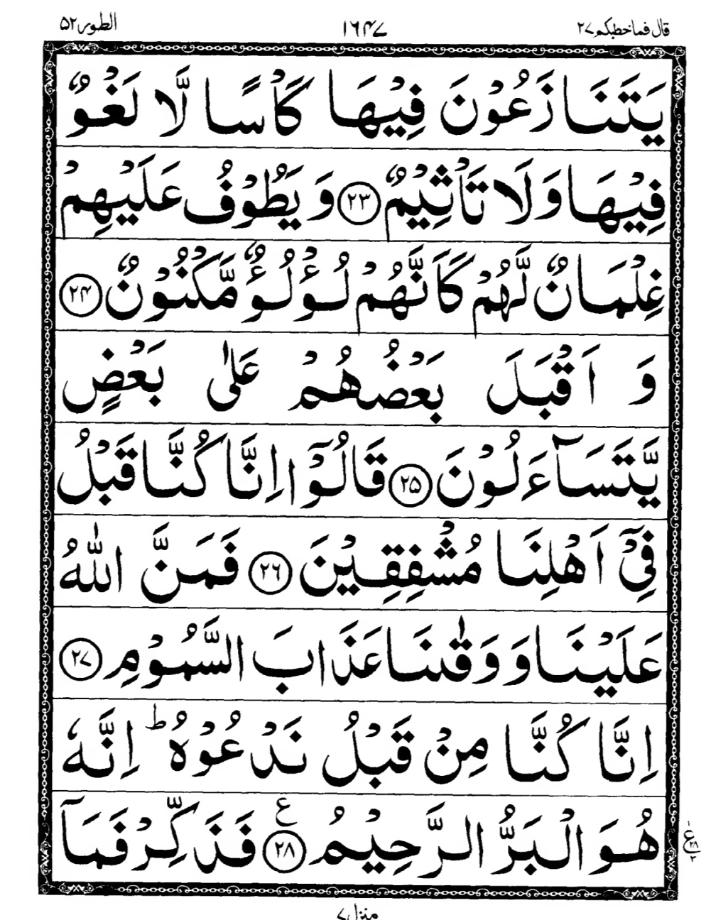 قال فماخطبکم ۲۷ ۱۶۴۷ الطور ۵۲
يَتَنَازَعُوْنَ فِيْهَا كَاْسًا لَّا لَغْوٌ
فِيْهَا وَلَا تَاْثِيْمٌ ﴿۲۳﴾ وَيَطُوْفُ عَلَيْهِمْ
غِلْمَانٌ لَّهُمْ كَاَنَّهُمْ لُؤْلُؤٌ مَّكْنُوْنٌ ﴿۲۴﴾
وَ اَقْبَلَ بَعْضُهُمْ عَلٰى بَعْضٍ
يَّتَسَآءَلُوْنَ ﴿۲۵﴾ قَالُوْٓا اِنَّا كُنَّا قَبْلُ
فِيْٓ اَهْلِنَا مُشْفِقِيْنَ ﴿۲۶﴾ فَمَنَّ اللّٰهُ
عَلَيْنَا وَوَقٰىنَا عَذَابَ السَّمُوْمِ ﴿۲۷﴾
اِنَّا كُنَّا مِنْ قَبْلُ نَدْعُوْهُ ؕ اِنَّهٗ
هُوَ الْبَرُّ الرَّحِيْمُ ﴿۲۸﴾ ع فَذَكِّرْ فَمَآ
منزل ۷